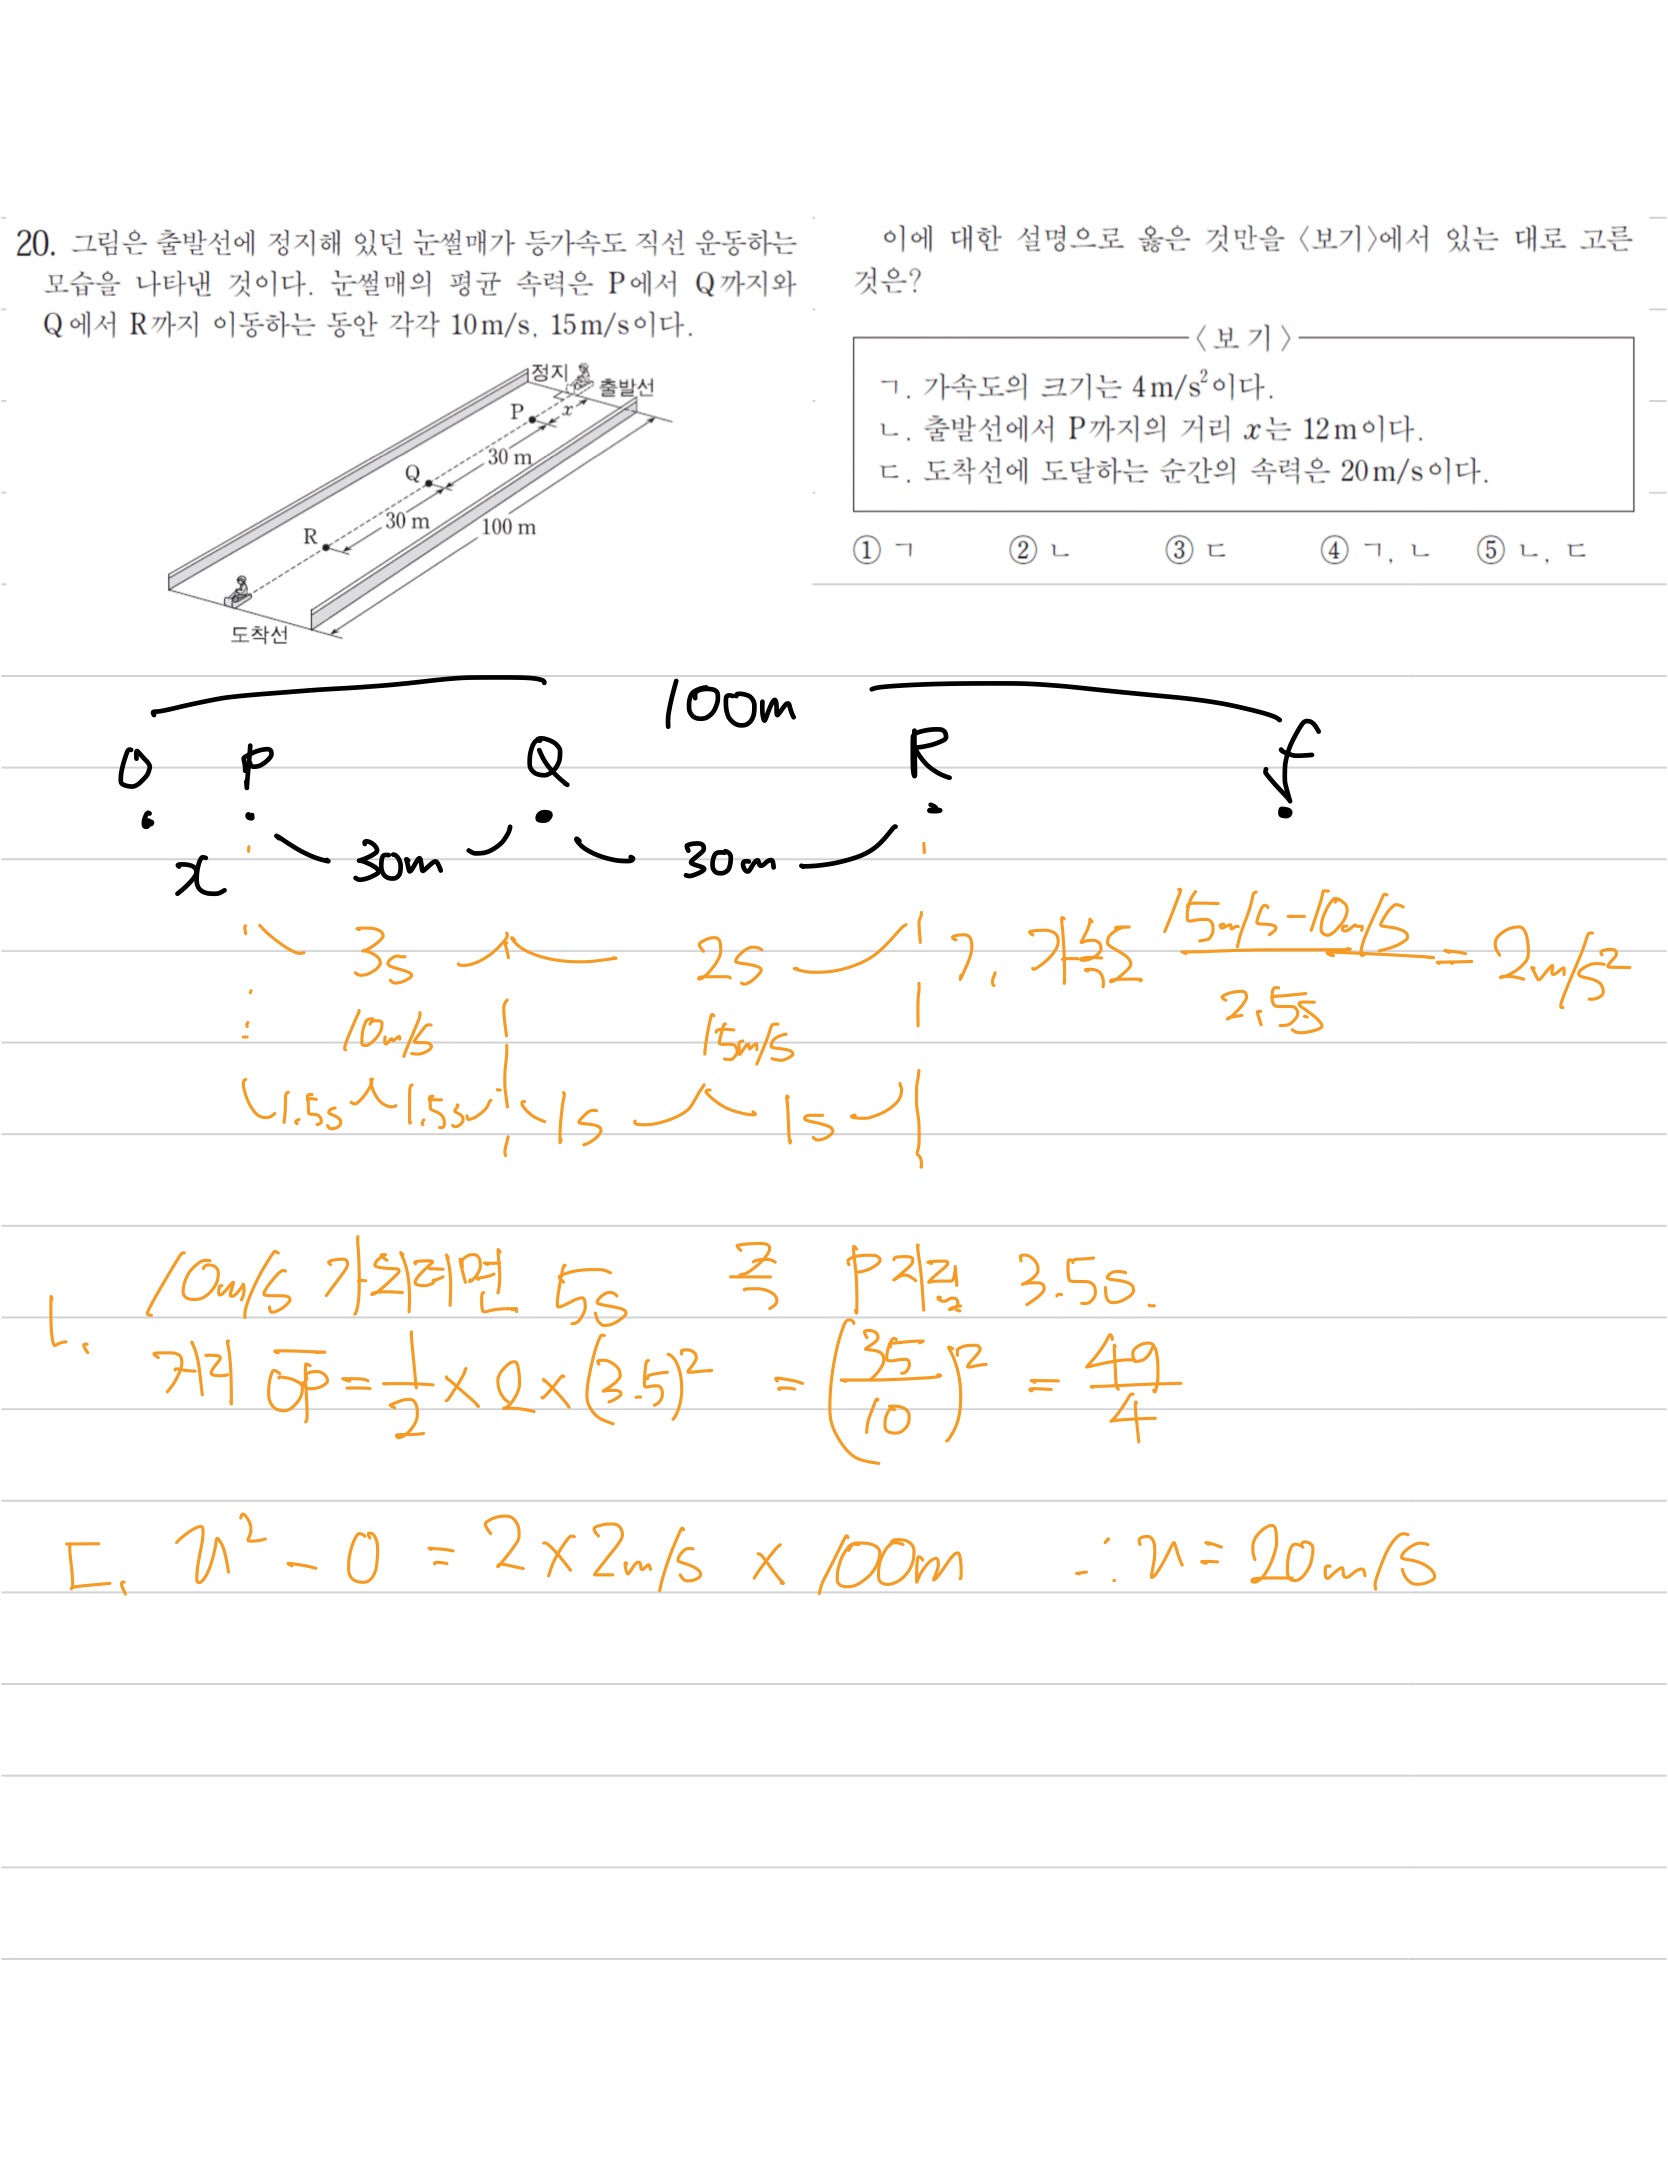 20. 그림은 출발선에 정지해 있던 눈썰매가 등가속도 직선 운동하는
모습을 나타낸 것이다. 눈썰매의 평균 속력은 P에서 Q까지와
Q에서 R까지 이동하는 동안 각각 10 m/s, 15 m/s이다.
정지
출발선
P
x
30 m
Q
30 m
100 m
R
도착선
이에 대한 설명으로 옳은 것만을 〈보기〉에서 있는 대로 고른
것은?
〈보 기〉
ㄱ. 가속도의 크기는 4 m/s²이다.
ㄴ. 출발선에서 P까지의 거리 x는 12 m이다.
ㄷ. 도착선에 도달하는 순간의 속력은 20 m/s이다.
① ㄱ ② ㄴ ③ ㄷ ④ ㄱ, ㄴ ⑤ ㄴ, ㄷ
100m
O P Q R f
x 30m 30m
3s 2s
10m/s 15m/s
1.5s 1.5s 1s 1s
ㄱ. 가속도 (15m/s-10m/s)/2.5s = 2m/s²
ㄴ. 10m/s 가 되려면 5s 즉 P지점 3.5s.
거리 OP = 1/2 × 2 × (3.5)² = (35/10)² = 49/4
ㄷ. v² - 0 = 2 × 2m/s × 100m ∴ v = 20m/s